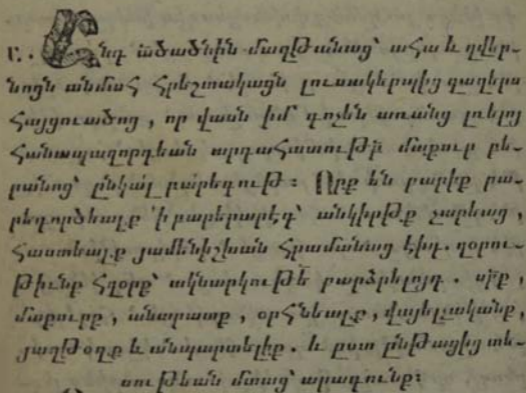 Ը. Ընդ ա̅ծածնին մաղթանաց՝ ահա և զվեր-
նոցն անմահ Հրեշտակացն լուսակերպից զաղերս
Հայցուածոց, որ վասն իմ՝ գոչեն առանց լռելոյ
Հանապազորդեան արդահատութբ̅ մաքուր բե-
րանոց՝ ընկա՛լ բարեգութ։ Որք են բարիք բա-
րեգործեալք ՚ի բարերարէդ՝ անկիրթք չարեաց,
Հաստեալք յամենիշխան Հրամանաց էիդ. զօրու-
թիւնք Հզօրք՝ ակնարկութե̅ բարձրելոյդ. ս̅ք,
մաքուրք, անարատք, օրՀնեալք, վայելչականք,
յաղթօղք և անպարտելիք. և ըստ ընթացից տե-
սութեան մտաց՝ արագունք։